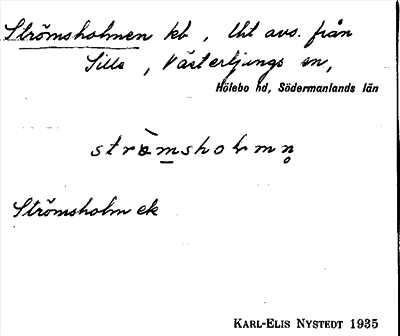 Strömsholmen kb, Uht avs. från
Sille, Västerljungs sn,
Hölebo hd, Södermanlands län
Strömsholm ek
KARL-ELIS NYSTEDT 1935